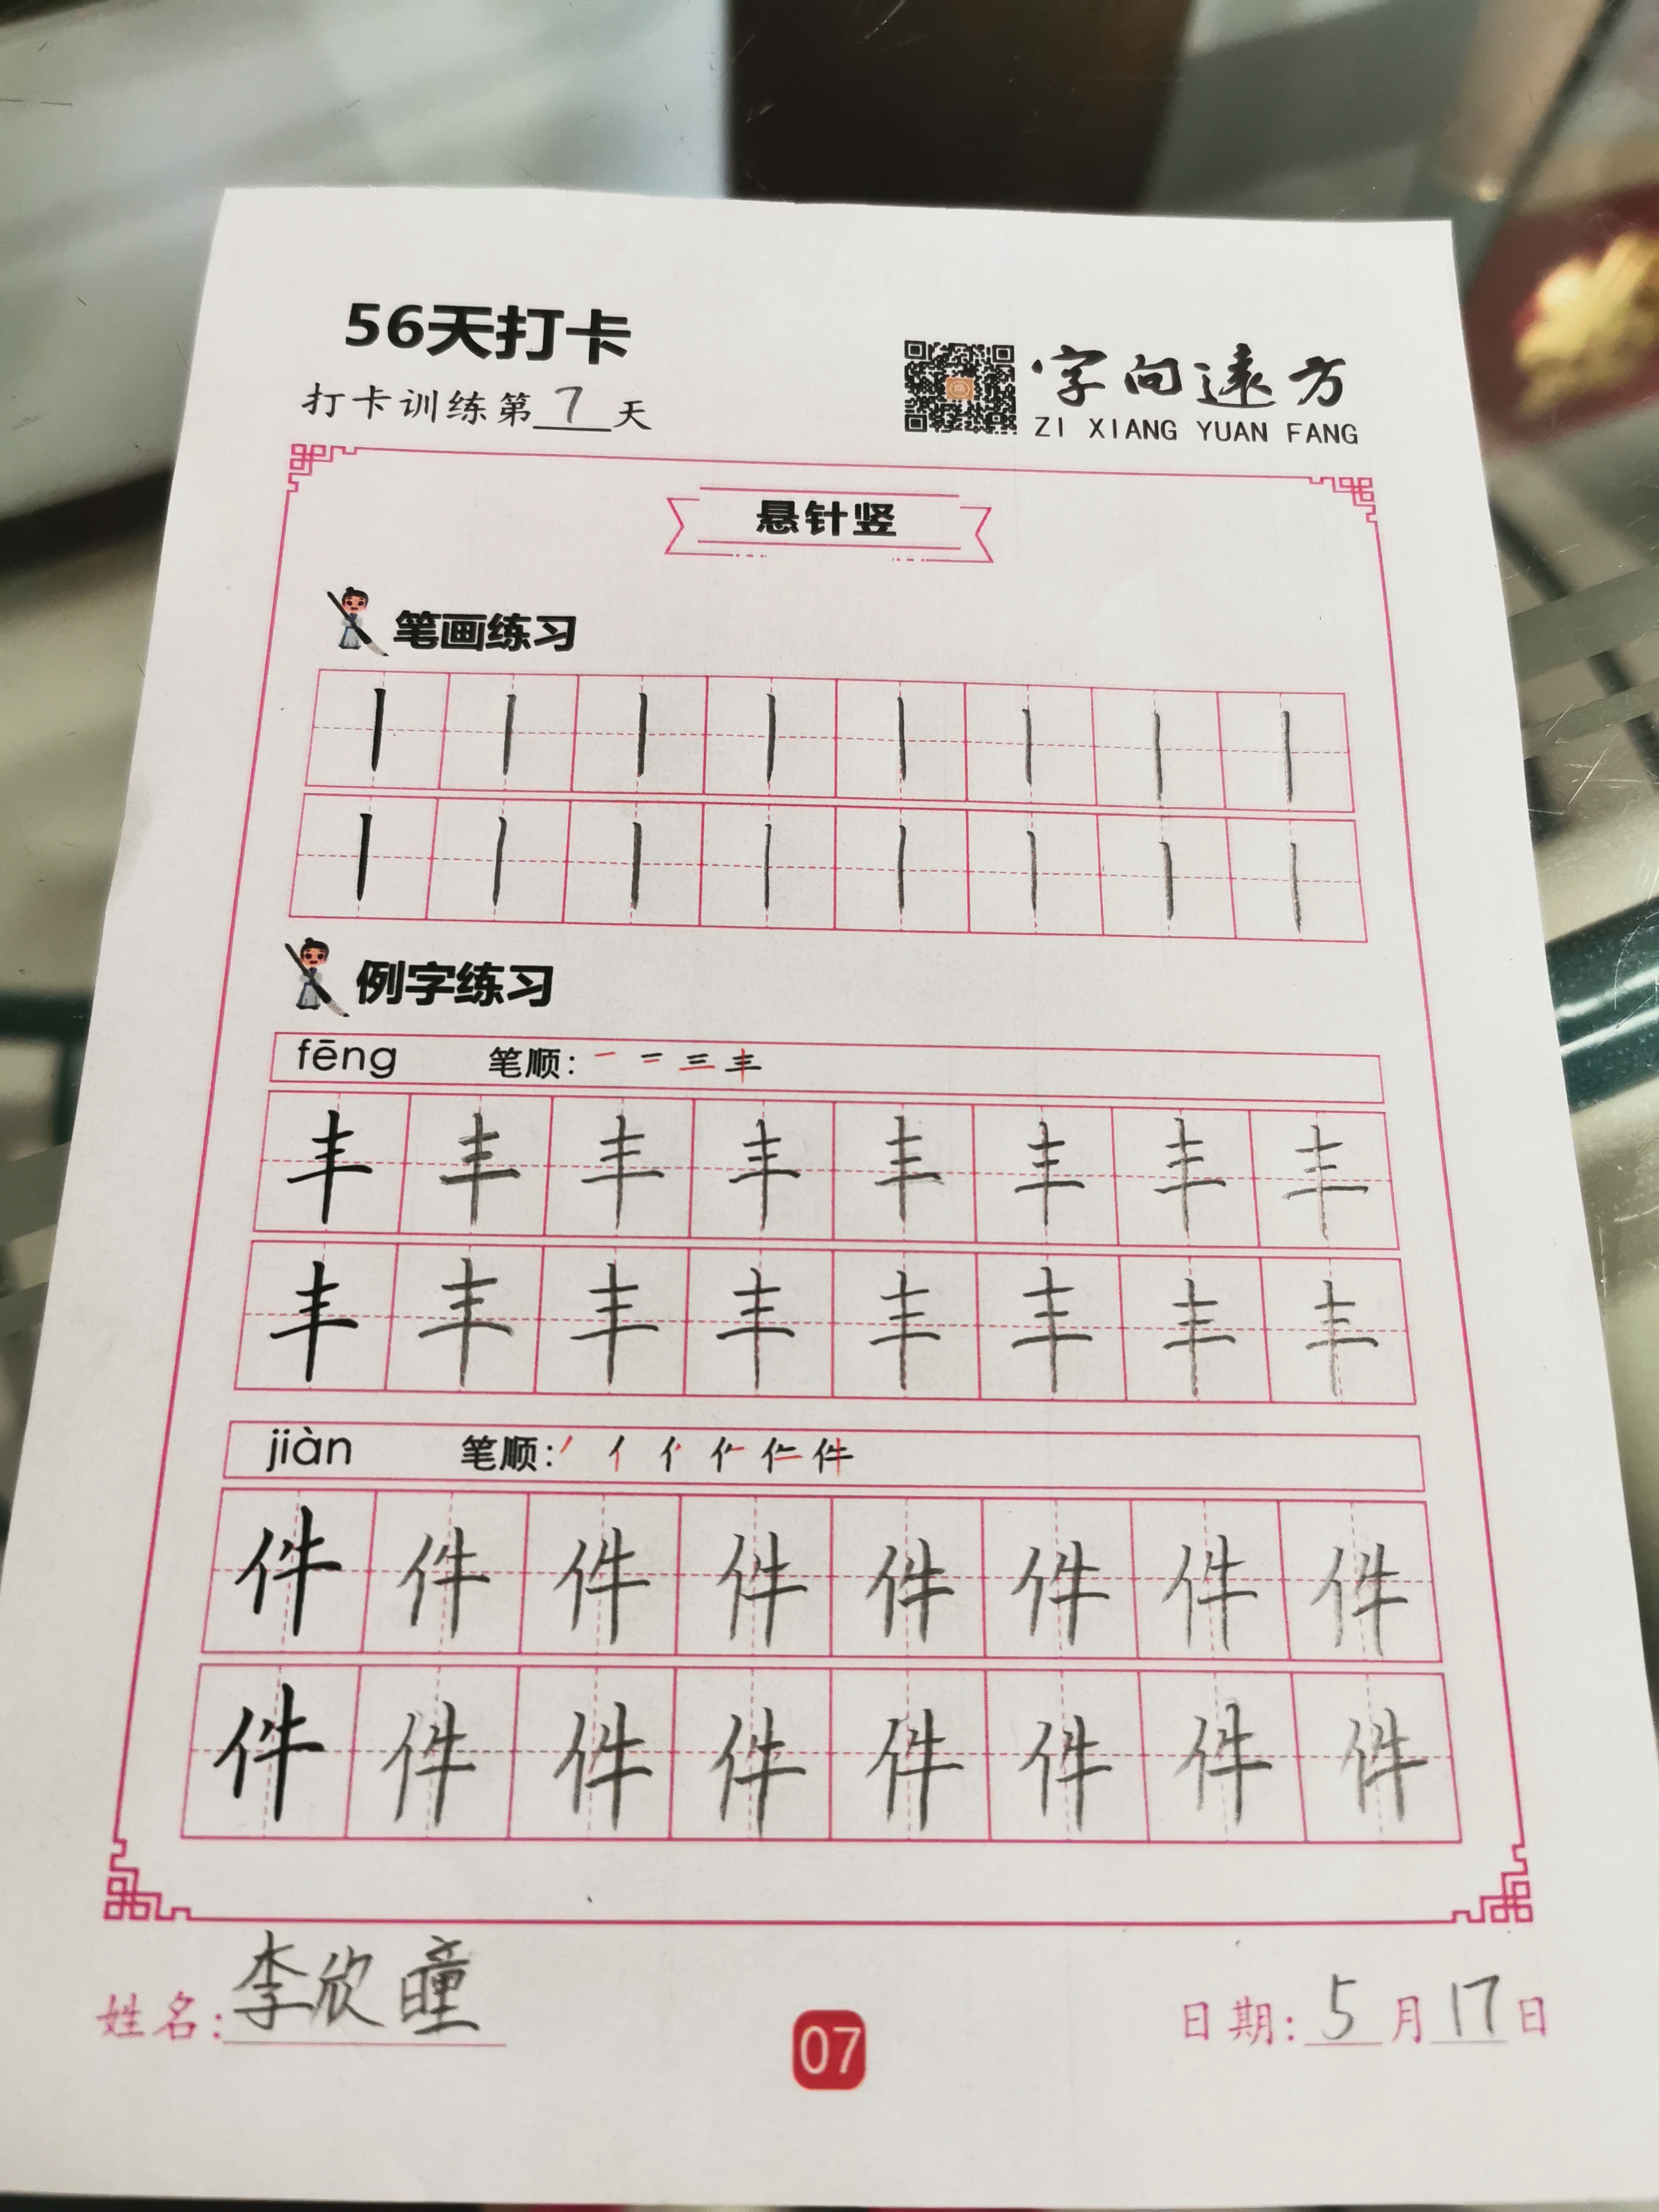 56天打卡
打卡训练第7天
字向远方
ZI XIANG YUAN FANG
悬针竖
笔画练习
丨丨丨丨丨丨丨丨
丨丨丨丨丨丨丨丨
例字练习
fēng 笔顺: 一 二 三 丰
丰丰丰丰丰丰丰丰
丰丰丰丰丰丰丰丰
jiàn 笔顺: 丿 亻 件
件件件件件件件件
件件件件件件件件
姓名: 李欣曈
07
日期: 5月17日